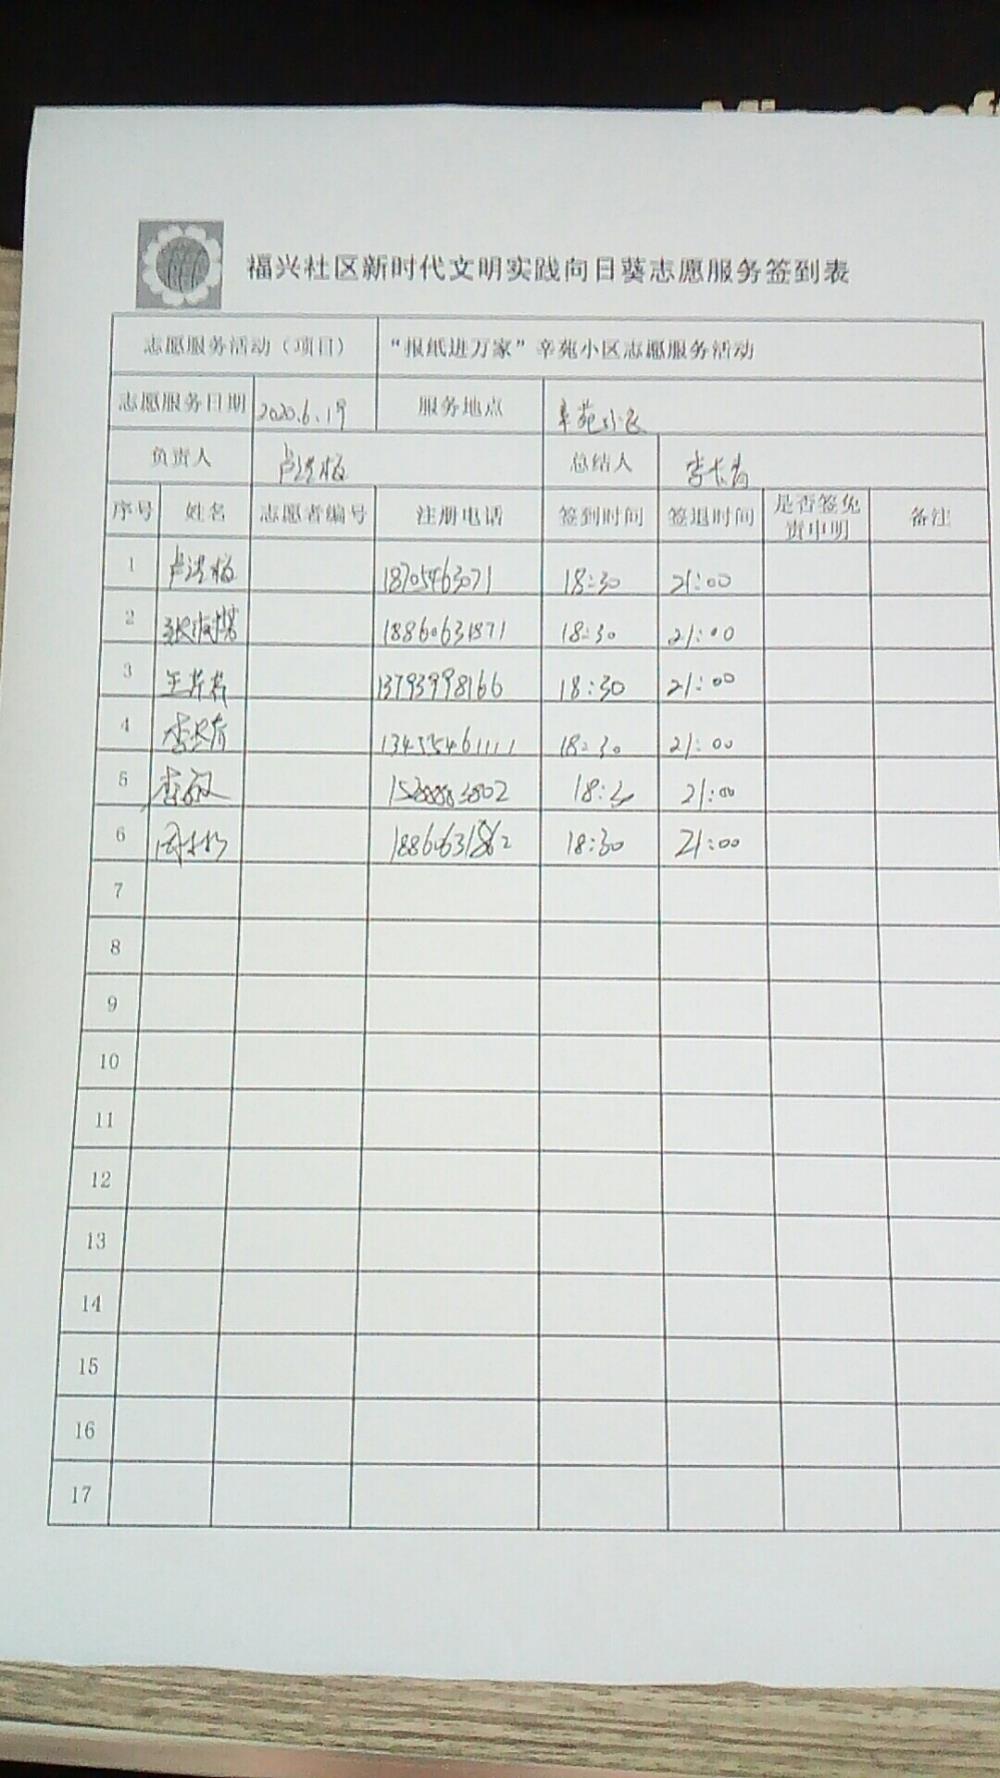 福兴社区新时代文明实践向日葵志愿服务签到表
志愿服务活动（项目） “报纸进万家”辛苑小区志愿服务活动
志愿服务日期 2020.6.19 服务地点 辛苑小区
负责人 总结人
序号 姓名 志愿者编号 注册电话 签到时间 签退时间 是否签免责申明 备注
1 18705463071 18:30 21:00
2 18860631871 18:30 21:00
3 13793998166 18:30 21:00
4 13455461111 18:30 21:00
5 李 18:30 21:00
6 18:30 21:00
7
8
9
10
11
12
13
14
15
16
17